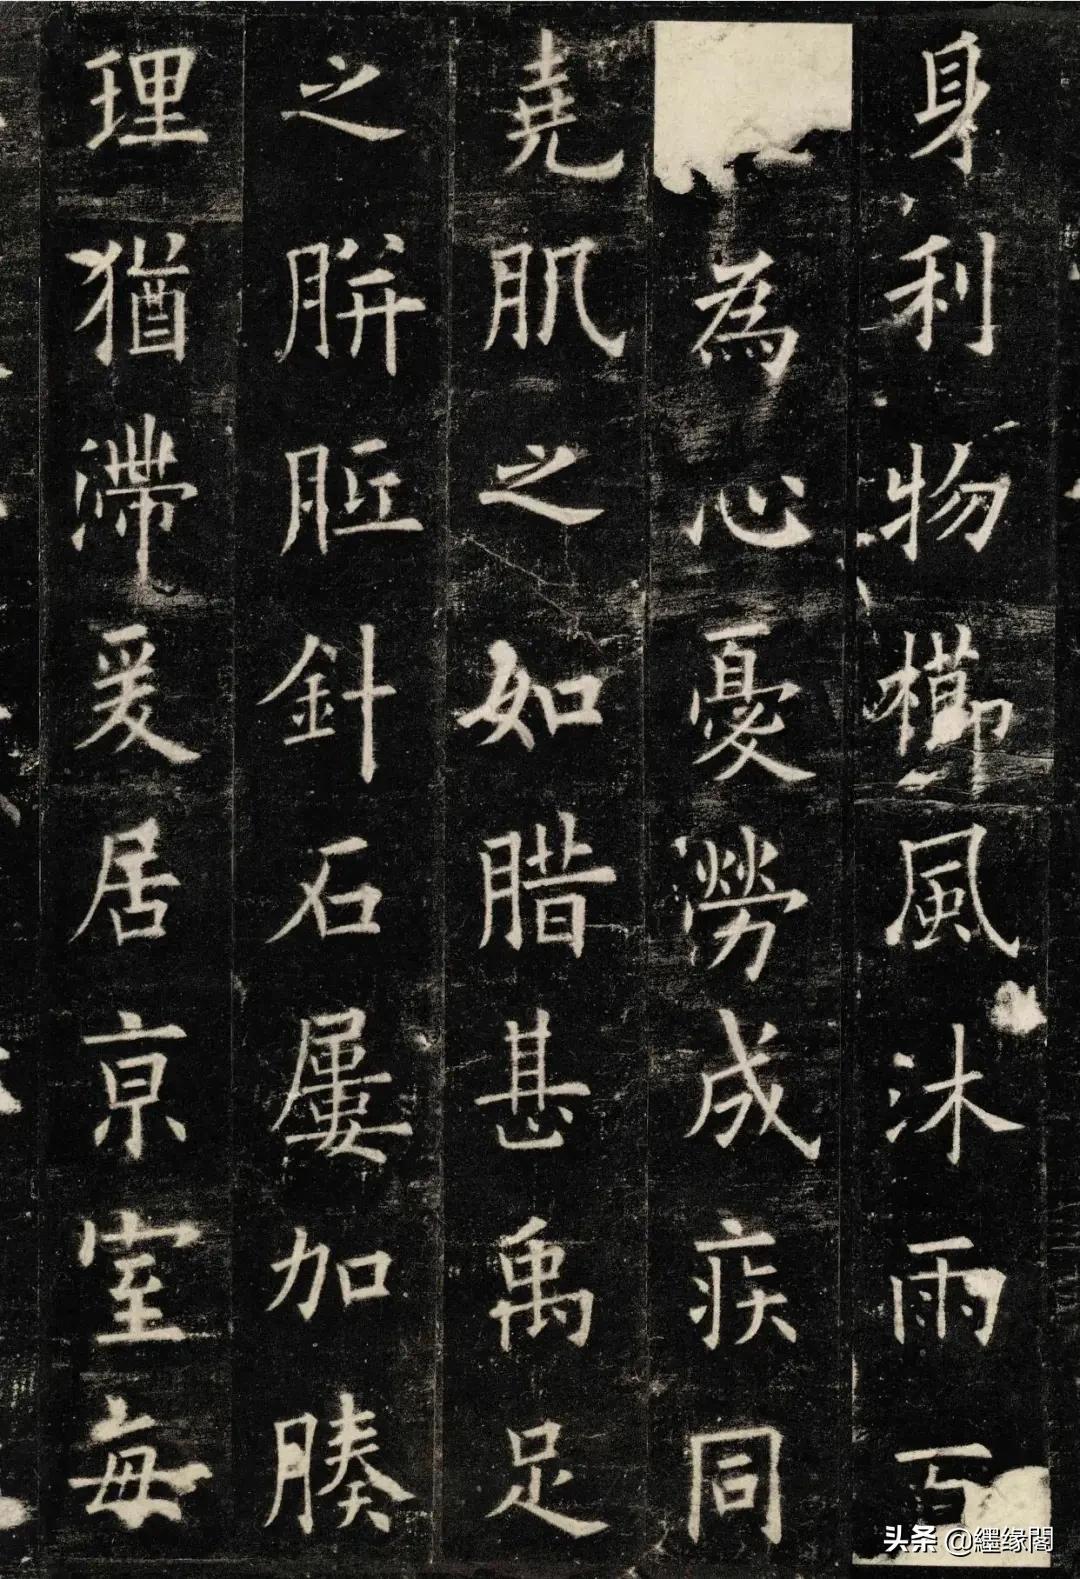 身利物櫛風沐雨百
為心憂勞成疾同
堯肌之如腊甚禹足
之胼胝針石屢加腠
理猶滯爰居京室每
头条 @繧缘阁